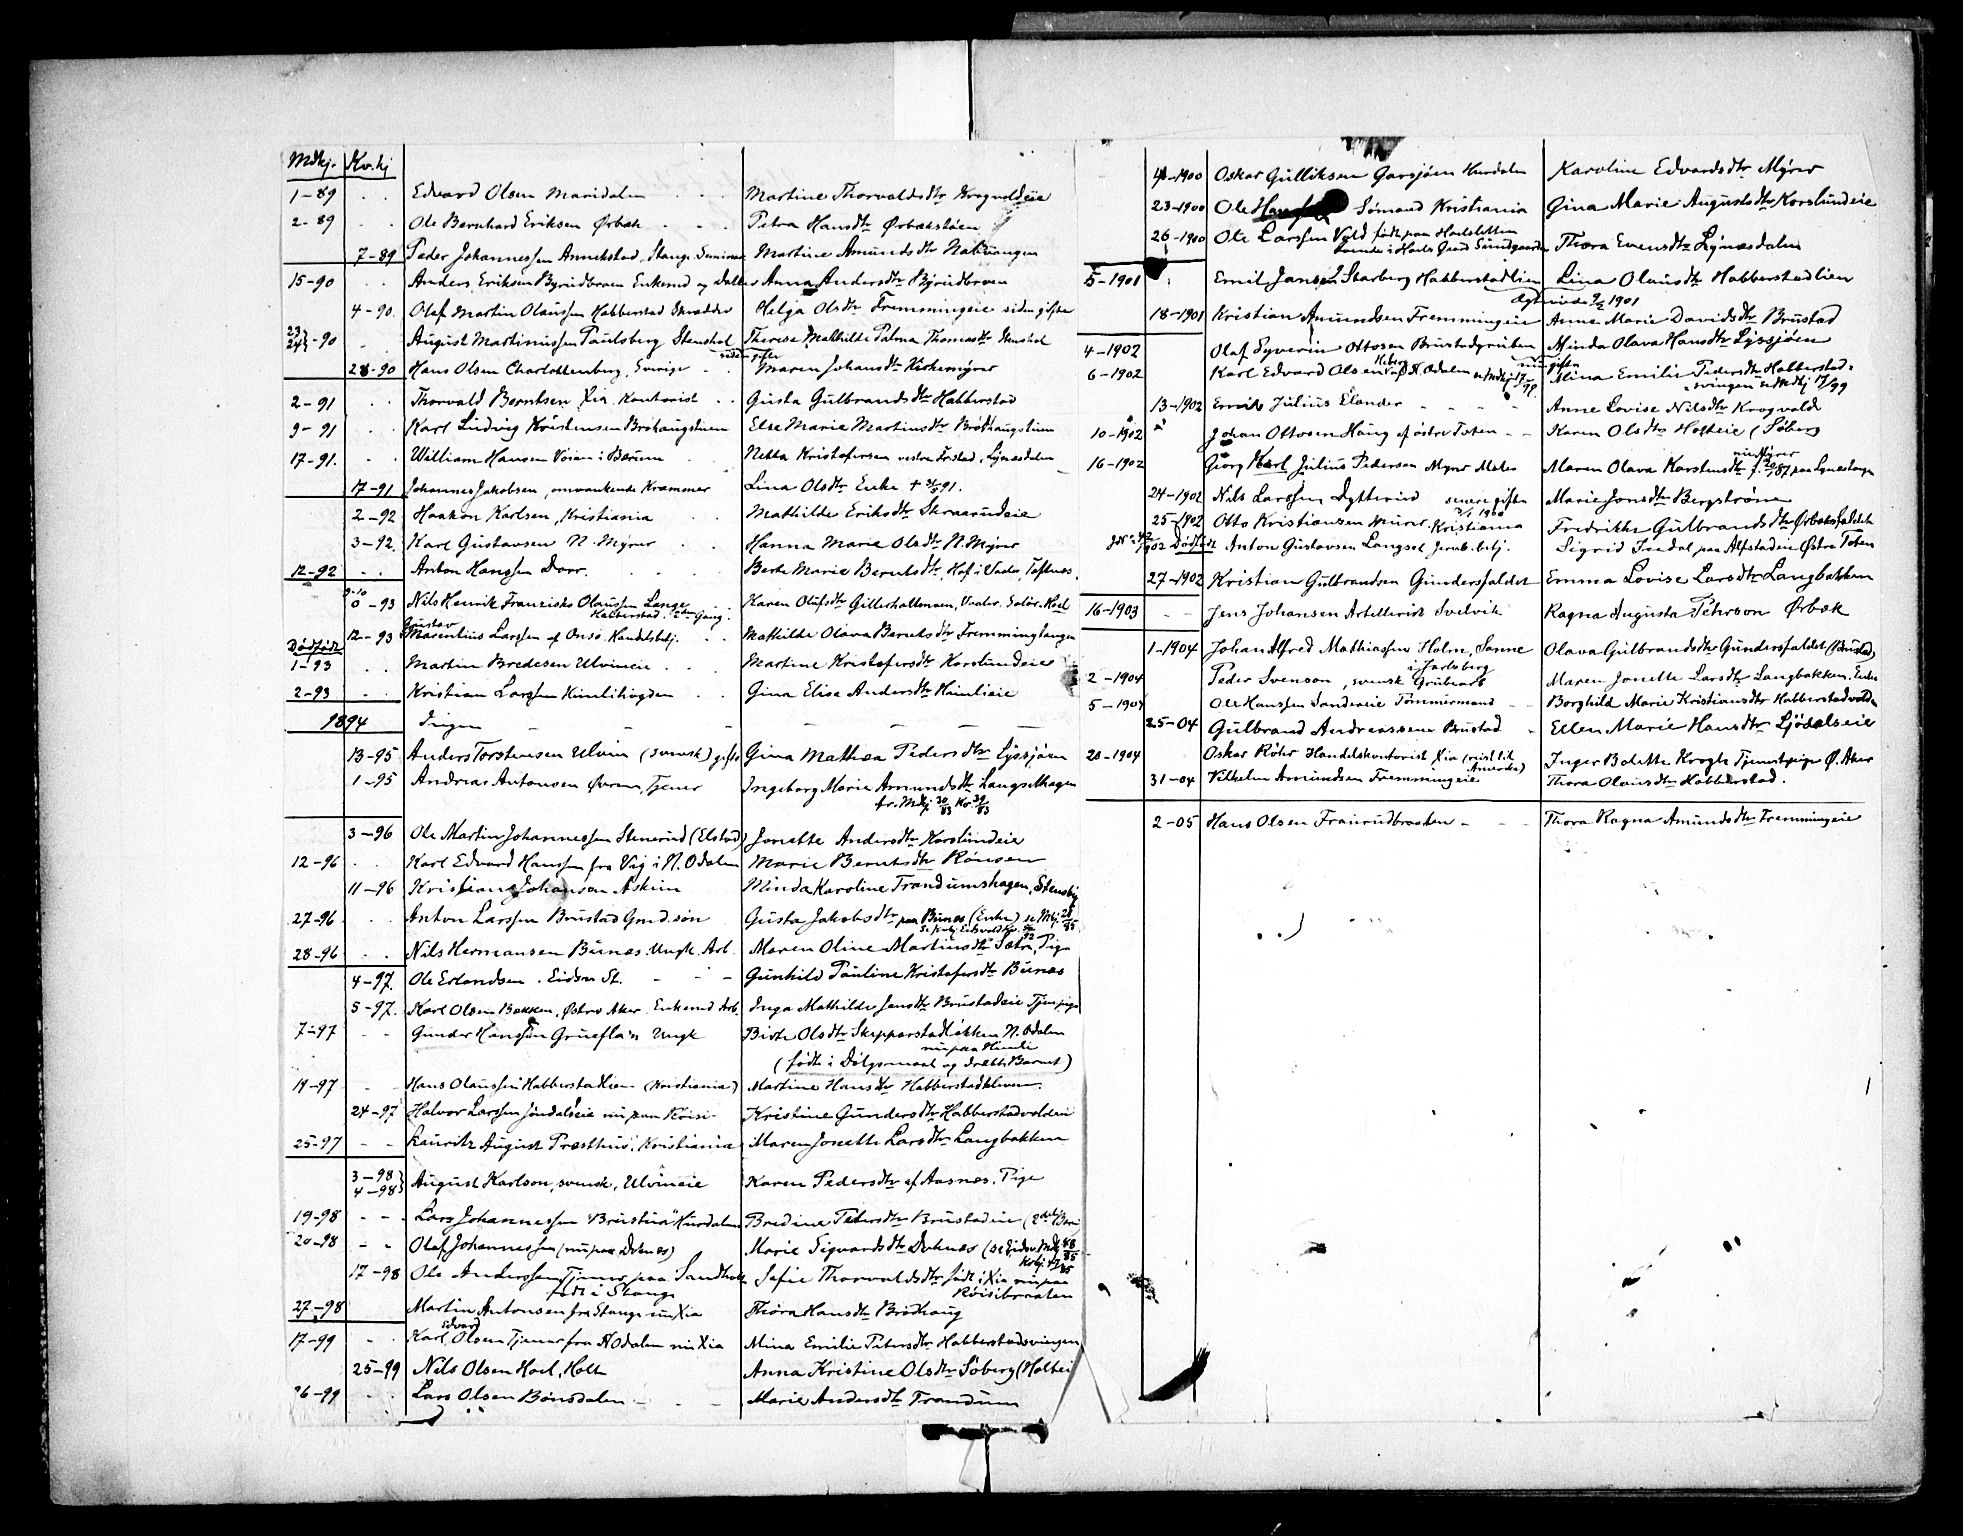 Mdkj. Kv.kj
1-89 Edvard Olsen Maridalen Martine Thorvaldsdtr Krogvoldeie
2-89 Ole Bernhard Eriksen Ørbæk Petra Hansdtr Ørbækstøen
7-89 Peder Johannessen Annekstad, Stange Martine Amundsdtr
15-90 Anders Eriksen Enkemd og Anna Andersdtr
4-90. Olaf Martin Olaussen Habberstad Skrædder Helga Olsdtr Fremmingeie siden gifte
23 24 -90 August Martinussen Paulsberg Stensbol Therese Mathilde Palma Thomasdtr Stensbol
siden gifte
28-90 Hans Olsen Charlottenberg, Sverige Maren Johansdtr Kirkemyrer
2-91 Thorvald Berntsen Xia. Kontorist Gusta Gulbrandsdtr Habberstad
9-91 Karl Ludvig Kristensen Brohaugstuen Else Marie Martinsdtr Brøthaugstuen
17-91. William Hansen Vøien i Bærum Netta Kristofersen vestre Lynæsdalen
17-91 Johannes Jakobsen, omvankende Kræmmer Lina Olsdtr Enke
2-92 Haakon Karlsen, Kristiania Mathilde Eriksdtr
3-92. Karl Gustavsen N. Myrer Hanna Marie Olsdtr N. Myrer
12-92 Anton Hanssen Dorr. Berte Marie Berntsdtr, Hof i Vaaler,
-93 Nils Henrik Franzisko Olaussen Lange Karen Olufsdtr Gillerhaltmoen, Vaaler. Solør.
Gustav Habberstad. Gang.
12-93 Marentius Larssen af Onsø Handelsbetj. Mathilde Olava Berntsdtr Fremminghaugen
Dødfødt
1-93 Martin Bredesen Ulvineie Martine Kristofersdtr Korslundeie
2-93 Kristian Larssen Himlihøgden Gina Elise Andersdtr Himlieie
1894 Ingen
13-95 Anders Torstensen Ulvin (svensk) gifte Gina Mathea Pedersdtr Lyssjøen
1-95 Andreas Antonsen Øvren, Tjener Ingeborg Marie Amundsdtr Langsethagen
fr. Mdkj 30/83 Kv. 39/83
3-96 Ole Martin Johannessen Stenerud (Elstad) Jonette Andersdtr Korslundeie
12-96 Karl Edvard Hanssen fra Vaig i N. Odalen Marie Berntsdtr Rønsen
11-96 Kristian Johansen Askim Minda Karoline Trandumshagen, Stensby
27-96 Anton Larssen Brustad Grud.søn Gusta Jakobsdtr paa Bunes (Enke) se Mkj. 28/85
28-96 Nils Hermansen Bunes. Ungk. Arb. Maren Oline Martinsdtr Sætra, Pige
4-97. Ole Erlandsen. Eidsv. St. Gunhild Pauline Kristofersdtr Bunes
5-97. Karl Olsen Bakken, Østre Aker. Enkemd Arb. Inga Mathilde Jensdtr Brustadeie Tjen.pige
7-97 Gunder Hanssen Grueflaen Ungk Birte Olsdtr Skepparstadløkken N. Odalen
nu paa Himli
(født i Dølgsmaal og dræbt Barnet)
14-97 Hans Olaussen Habberstadlien (Kristiania) Martine Hansdtr Habberstadkleven.
24-97 Halvor Larssen Jøndalseie nu paa Røisi Kristine Gundersdtr Habberstadvolden
25-97 Lauritz August Præsthus, Kristiania Maren Jonette Larsdtr Langbakken
3-98 4-98 August Karlson, svensk, Ulvineie Karen Pedersdtr af Aasnes, Pige
19-98 Lars Johannessen "Brustua" Hurdalen Bredine Petersdtr Brustadeie
20-98 Olaf Johannessen (nu paa Doknes) Marie Sigvardsdtr Doknes (se Eidsv. Mdkj 48/85
17-98 Ole Anderssen Tjener paa Sandholt Sofie Thorvaldsdtr født i Xia nu paa
født i Stange Røisibraaten
27-98 Martin Antonsen fra Stange nu Xia Thora Hansdtr Brødhaug
17-99 Karl Edvard Olsen Tjener fra N Odalen nu Xia Mina Emilie Petersdtr Habberstadsvingen
25-99 Nils Olsen Hoel, Holt Anna Kristine Olsdtr Søberg (Holtei
26-99 Lars Olsen Bønsdalen Marie Andersdtr Trandum
4-1900 Oskar Gulliksen Garsjøen Hurdalen Karoline Edvardsdtr Myrer
23-1900 Ole Hanssen Sömand Kristiania Gina Marie Augustsdtr Korslundeie
26-1900 Ole Larssen Vold født paa Horlsletten Thora Evensdtr Lynæsdalen
5-1901 Emil Jansen Skarberg Habberstadlien Lina Olausdtr Habberstadlien
Ægteviede 9/2 1901
18-1901 Kristian Amundsen Fremmingeie Anne Marie Davidsdtr Brustad
4-1902 Olaf Syverin Ottosen Brustadgruben Minda Olava Hansdtr Lyssjøen
6-1902 Karl Edvard Olsen af N. Odalen se Mdkj 17/99 Mina Emilie Pedersdtr Habberstad-
svingen se Mdkj 17/99
13-1902 Emil Julius Elander Anne Lovise Nilsdtr Krogvold
10-1902 Johan Ottosen Haug af østre Toten Karen Olsdtr Holteie (Søberg
16-1902 Georg Karl Julius Pedersen Myrer Maler Maren Olava Karstensdtr nu Myrer
24-1902 Nils Larssen Dytterud senere gifte Marie Jonsdtr Bergstrøm
25-1902 Otto Kristiansen Murer. Kristiania Fredrikke Gulbrandsdtr Ørbæksfaldet
1902 Dødfødt Anton Gustavsen Langset Jernb.betj. Sigrid Indal paa Alfstadeie Østre Toten
27-1902 Kristian Gulbrandsen Gundersfaldet Emma Lovise Larsdtr Langbakken
16-1903 Jens Johansen Artillerist Svelvik Ragna Augusta Pehrson Ørbæk
1-1904 Johan Alfred Mathiassen Holm, Sonne Olava Gulbrandsdtr Gundersfaldet (Brustad)
i Jarlsberg
2-1904 Peder Svenson, svensk Grubearb Maren Jonette Larsdtr Langbakken, Enke
5-1904 Ole Hanssen Sandereie Tømmermand Borghild Marie Kristiansdtr Habberstadvolden
25-04 Gulbrand Andreassen Brustad Ellen Marie Hansdtr Ljødalseie
20-1904 Oskar Röhr Handelskontorist Xia (reist til Amerika) Inger Bolette Krogh Tjenestpige Ø. Aker
31-04 Vilhelm Amundsen Fremmingeie Thora Olausdtr Habberstad.
2-05 Hans Olsen Fruerudbraaten Thora Ragna Amundsdtr Fremmingeie